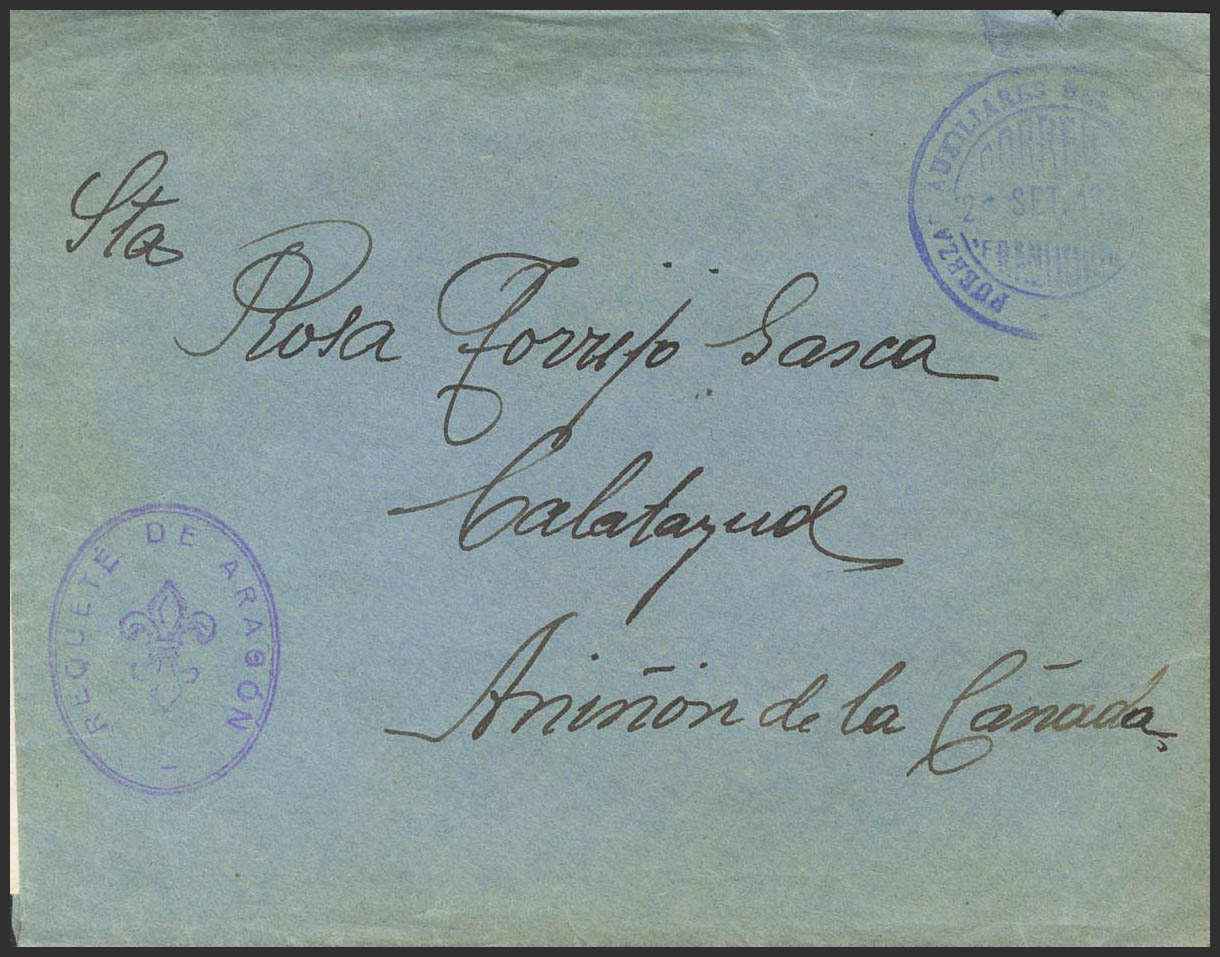 FUERZAS AUXILIARES DEL
CORREO
SET. 19
FRANQUICIA
Sta
Rosa Torrijo Gasca
Calatayud
Aniñón de la Cañada
REQUETE DE ARAGÓN